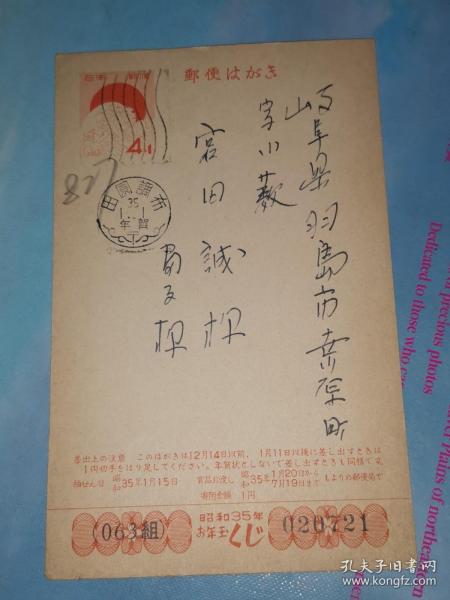 郵便はがき
日本郵便
4+1
827
田園調布
35
1.1
年賀
岐阜県羽島市桑原町
字小薮
宮田 誠 様
様
差出上の注意 このはがきは12月14日以前、1月11日以後に差し出すときは
1円切手をはり足してください。年賀状としないで差し出すときも同様です
抽せん日 昭和35年1月15日
賞品お渡し 昭和35年1月20日から7月19日まで もよりの郵便局で
寄附金額 1円
昭和35年
お年玉くじ
(063組
020721
Dedicated to those who
precious photos
Plains of northeastern
孔夫子旧书网